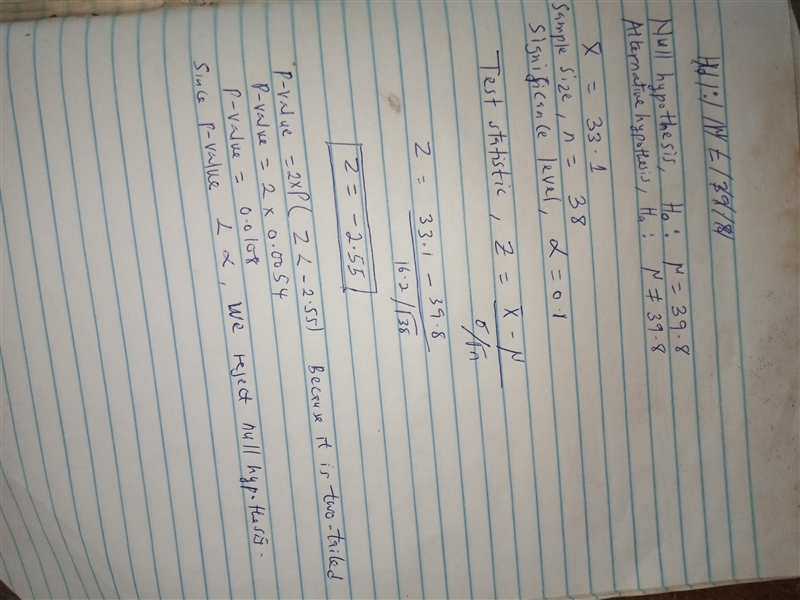 Null hypothesis, H₀: μ = 39.8
Alternative hypothesis, Hₐ: μ ≠ 39.8
X̄ = 33.1
Sample size, n = 38
Significance level, α = 0.1
Test statistic, Z = (X̄ - μ) / (σ/√n)
Z = (33.1 - 39.8) / (16.2/√38)
Z = -2.55
P-value = 2xP(Z < -2.55) Because it is two-tailed
P-value = 2 x 0.0054
P-value = 0.0108
Since P-value < α, we reject null hypothesis.